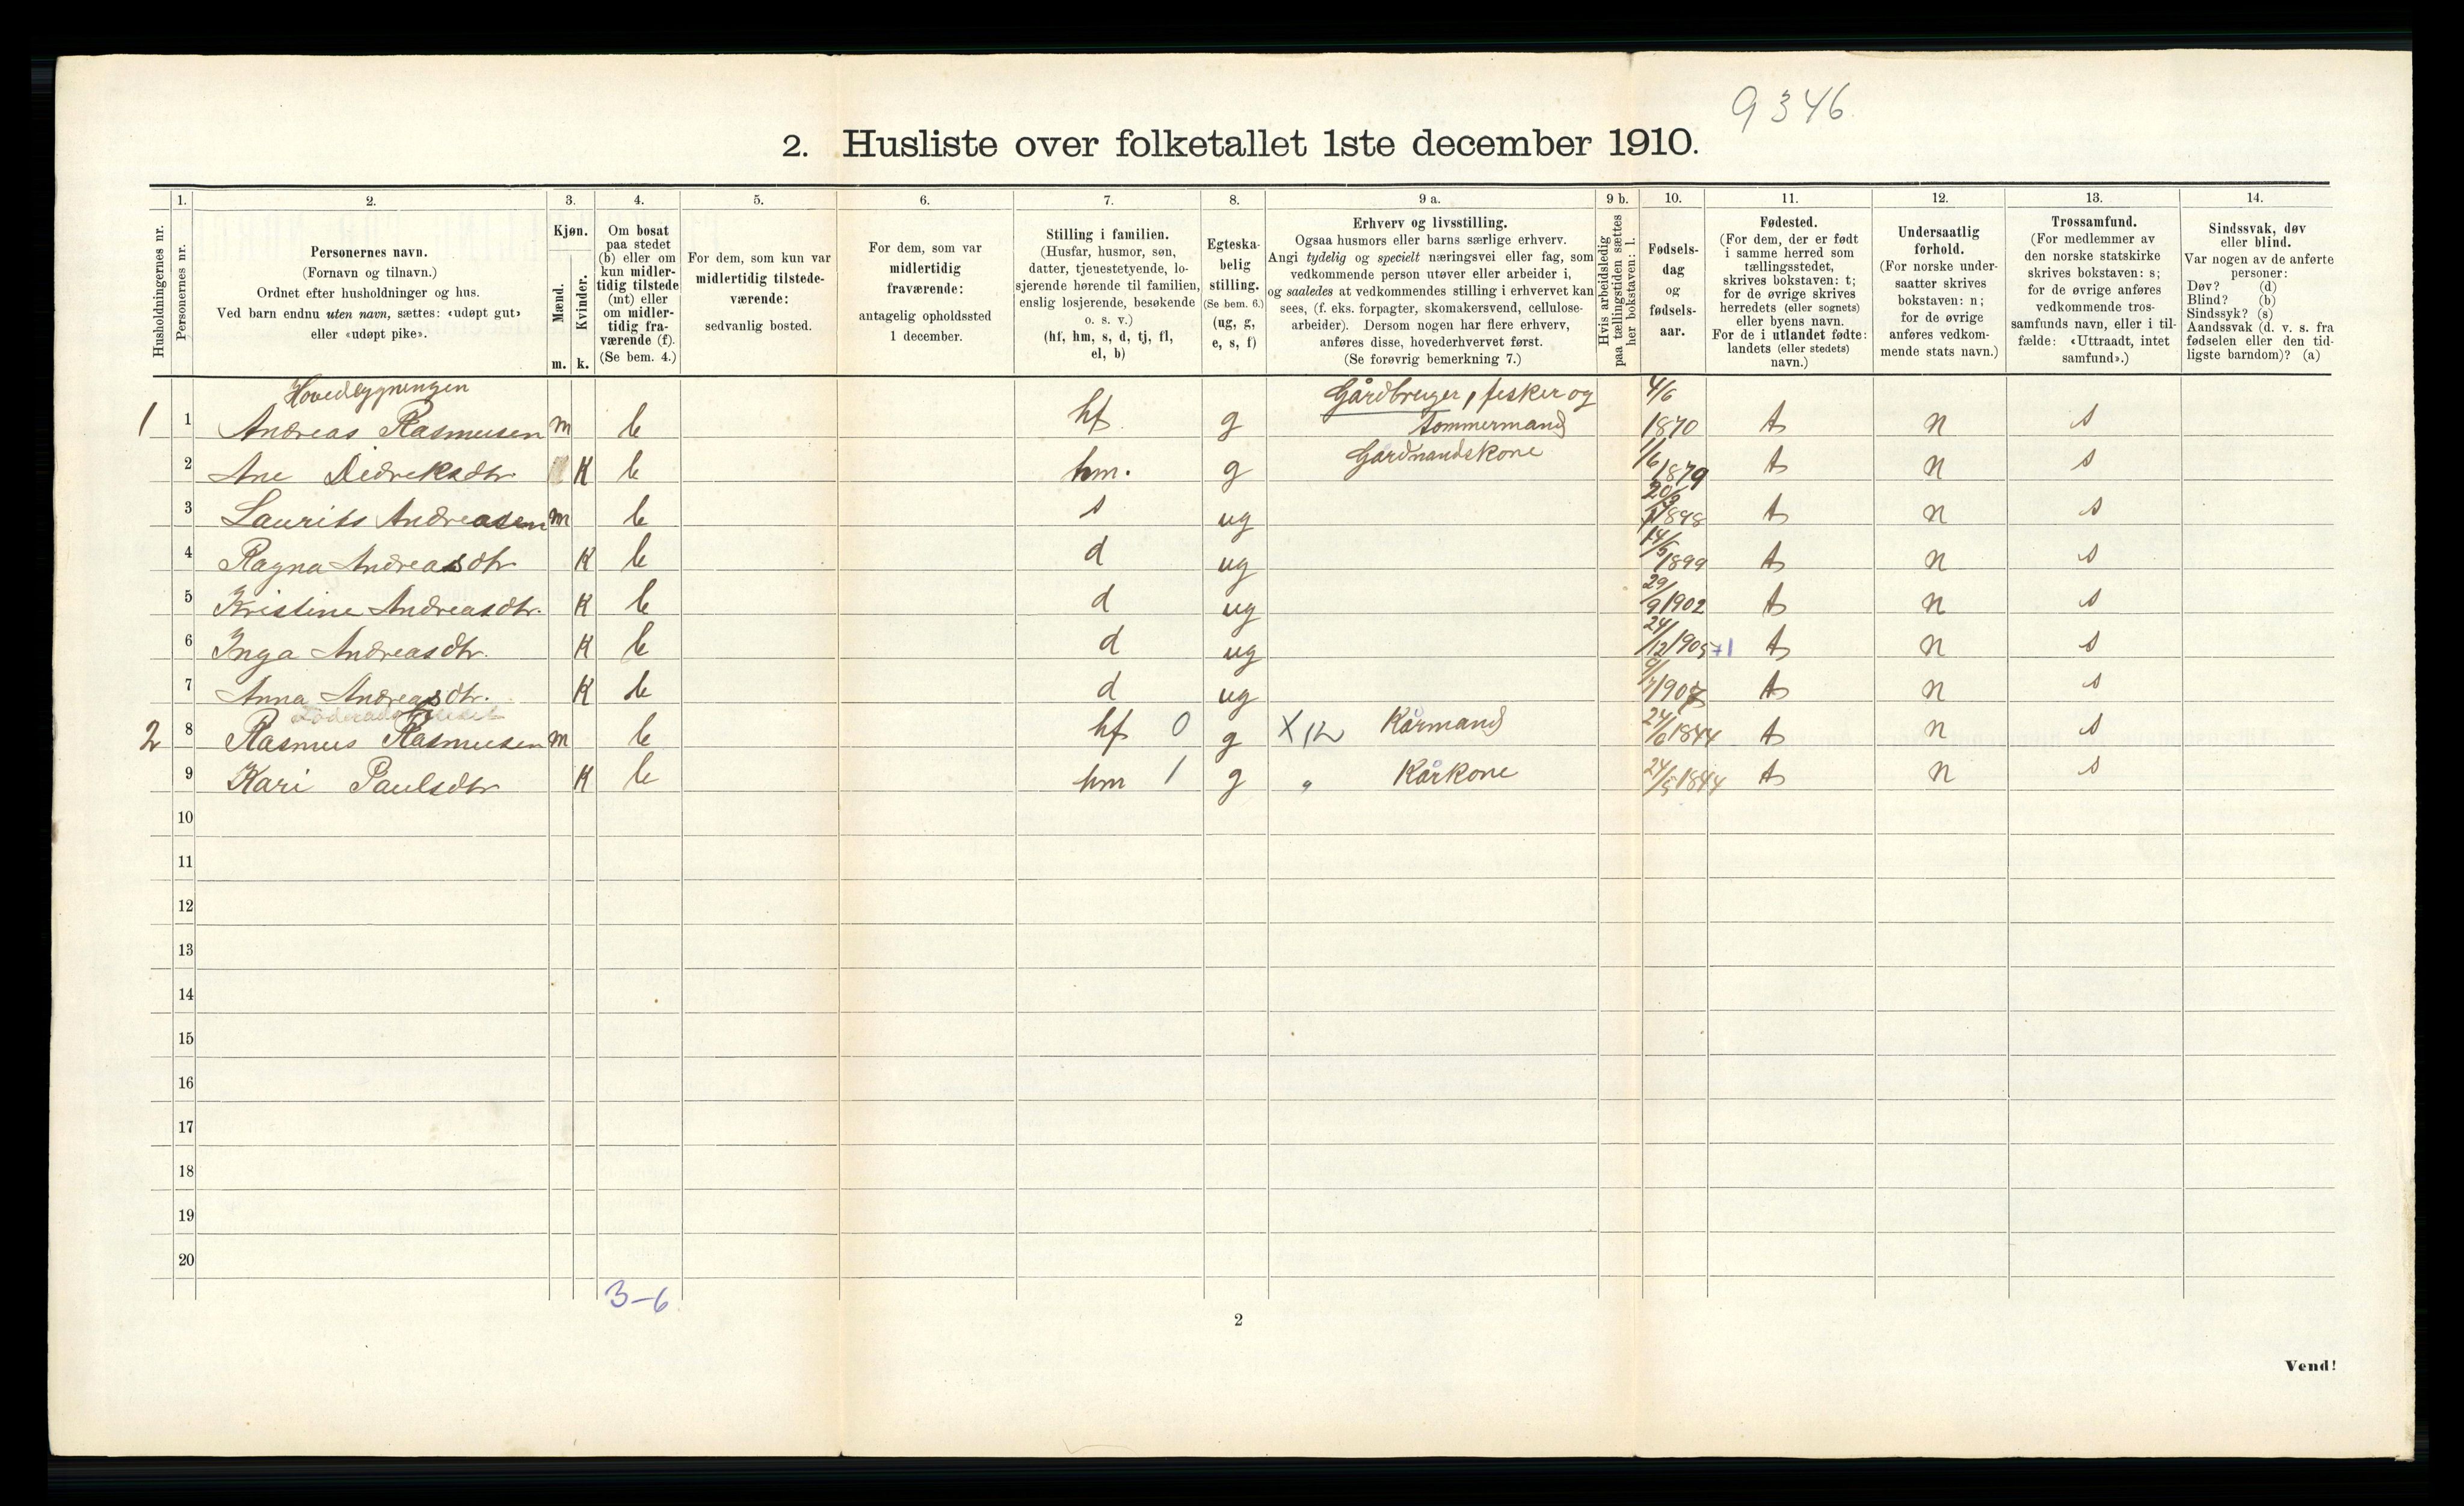 9346
2. Husliste over folketallet 1ste december 1910.
1. 2. 3. 4. 5. 6. 7. 8. 9 a. 9 b. 10. 11. 12. 13. 14.
Husholdningernes nr.
Personernes nr.
Personernes navn.
(Fornavn og tilnavn.)
Ordnet efter husholdninger og hus.
Ved barn endnu uten navn, sættes: «udøpt gut»
eller «udøpt pike».
Kjøn.
Mænd.
Kvinder.
m. k.
Om bosat
paa stedet
(b) eller om
kun midler-
tidig tilstede
(mt) eller
om midler-
tidig fra-
værende (f).
(Se bem. 4.)
For dem, som kun var
midlertidig tilstede-
værende:
sedvanlig bosted.
For dem, som var
midlertidig
fraværende:
antagelig opholdssted
1 december.
Stilling i familien.
(Husfar, husmor, søn,
datter, tjenestetyende, lo-
sjerende hørende til familien,
enslig losjerende, besøkende
o. s. v.)
(hf, hm, s, d, tj, fl,
el, b)
Egteska-
belig
stilling.
(Se bem. 6.)
(ug, g,
e, s, f)
Erhverv og livsstilling.
Ogsaa husmors eller barns særlige erhverv.
Angi tydelig og specielt næringsvei eller fag, som
vedkommende person utøver eller arbeider i,
og saaledes at vedkommendes stilling i erhvervet kan
sees, (f. eks. forpagter, skomakersvend, cellulose-
arbeider). Dersom nogen har flere erhverv,
anføres disse, hovederhvervet først.
(Se forøvrig bemerkning 7.)
Hvis arbeidsledig
paa tællingstiden sættes
her bokstaven: l.
Fødsels-
dag
og
fødsels-
aar.
Fødested.
(For dem, der er født
i samme herred som
tællingsstedet,
skrives bokstaven: t;
for de øvrige skrives
herredets (eller sognets)
eller byens navn.
For de i utlandet fødte:
landets (eller stedets)
navn.)
Undersaatlig
forhold.
(For norske under-
saatter skrives
bokstaven: n;
for de øvrige
anføres vedkom-
mende stats navn.)
Trossamfund.
(For medlemmer av
den norske statskirke
skrives bokstaven: s;
for de øvrige anføres
vedkommende tros-
samfunds navn, eller i til-
fælde: «Uttraadt, intet
samfund».)
Sindssvak, døv
eller blind.
Var nogen av de anførte
personer:
Døv? (d)
Blind? (b)
Sindssyk? (s)
Aandssvak (d. v. s. fra
fødselen eller den tid-
ligste barndom)? (a)
Hovedbygningen
1 1 Andreas Rasmusen m b hf g Gårdbruger, fisker og tømmermand 4/6 1870 t n s
2 Ane Didreksdtr K b hm. g Gardmandskone 1/6 1879 t n s
3 Laurits Andreasen m b s ug 20/2 1898 t n s
4 Ragna Andreasdtr K b d ug 14/5 1899 t n s
5 Kristine Andreasdtr. K b d ug 29/9 1902 t n s
6 Inga Andreasdtr. K b d ug 24/12 1905 +1 t n s
7 Anna Andreasdtr. K b d ug 9/7 1907 t n s
2 8 Rasmus Rasmusen m b hf 0 g X 12 Kårmand 24/6 1844 t n s
9 Kari Paulsdtr K b hm 1 g " Kårkone 24/5 1844 t n s
10
11
12
13
14
15
16
17
18
19
20
3-6
2
Vend!